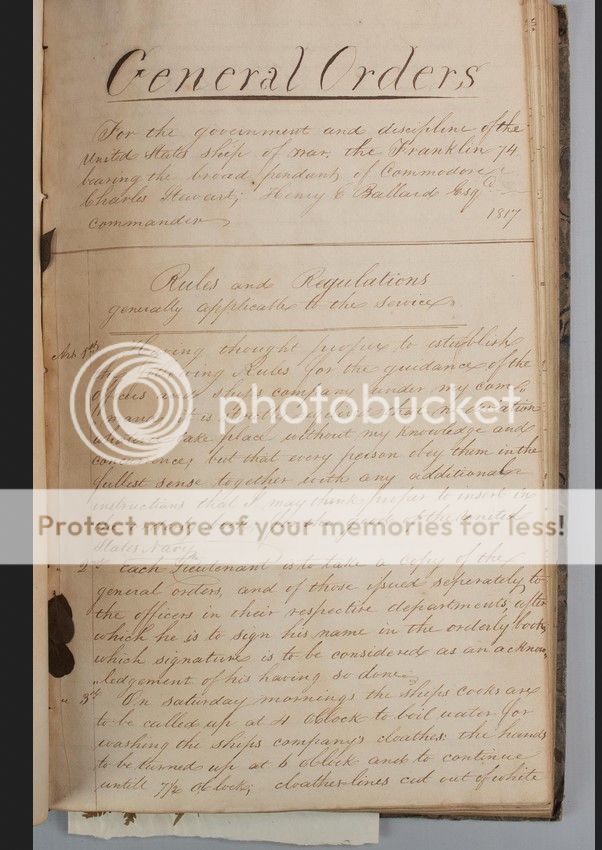 General Orders
For the government and discipline of the
United States ship of war, the Franklin 74
bearing the broad pendant, of Commodore
Charles Stewart; Henry E Ballard Esqr
commander
1817
Rules and Regulations
generally applicable to the service
Art. 1st Having thought proper to establish
the following Rules for the guidance of the
officers and ships company under my com
mand, it is
take place without my knowledge and
but that every person obey them in the
fullest sense together with any additional
instructions that I may think proper to insert in
States Navy
photobucket
Protect more of your memories for less!
2d Each Lieutenant is to take a copy of the
general orders, and of those issued seperately to
the officers in their respective departments, after
which he is to sign his name in the orderly book,
which signature is to be considered as an acknow
ledgement of his having so done
3d On saturday mornings the ships cooks are
to be called up at 4 oClock to boil water for
washing the ships company's cloathes: the hands
to be turned up at 6 oClock and to continue
untill 7 1/2 oClock; cloathes-lines cut out of white